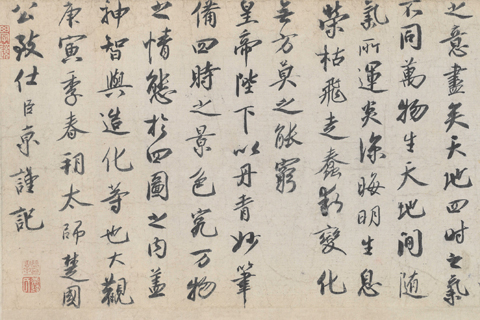 之意盡矣天地四時之氣
不同萬物生天地間隨
氣所運炎涼晦明生息
榮枯飛走蠢動變化
無方莫之能窮
皇帝陛下以丹青妙筆
備四時之景色究万物
之情態於四圖之內蓋
神智與造化等也大觀
庚寅季春朔太師楚國
公致仕臣京謹記